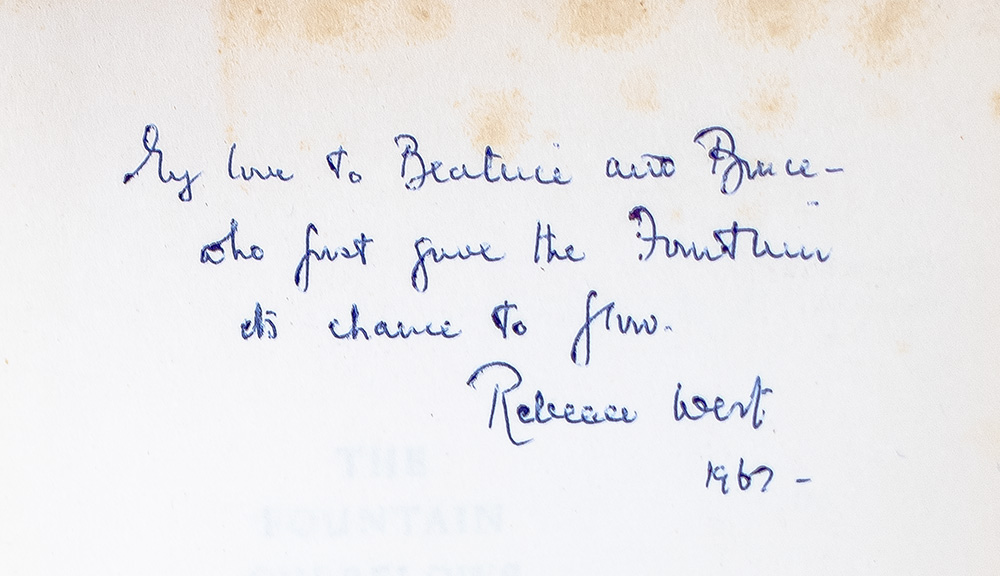 My love to Beatrice and Bruce –
who first gave the Fountain
its chance to flow.
Rebecca West
1967 –
THE
FOUNTAIN
OVERFLOWS